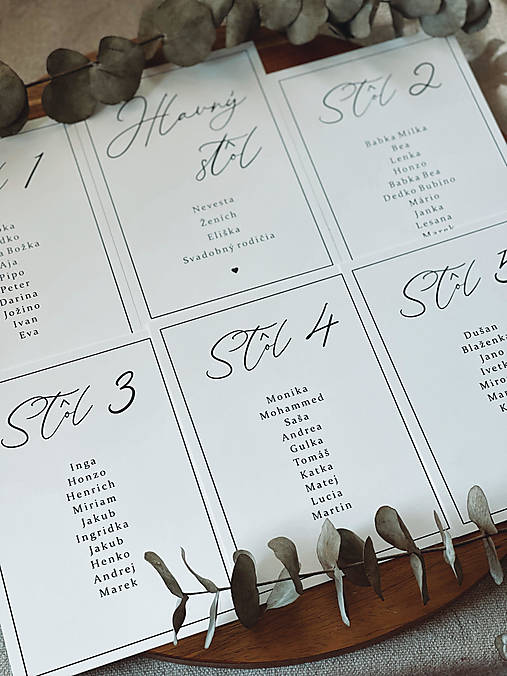 1
Božka
Aja
Pipo
Peter
Darina
Jožino
Ivan
Eva
Hlavný
stôl
Nevesta
Ženích
Eliška
Svadobný rodičia
Stôl 2
Babka Milka
Bea
Lenka
Honzo
Babka Bea
Dedko Bubino
Mário
Janka
Lesana
Stôl 3
Inga
Honzo
Henrich
Miriam
Jakub
Ingridka
Jakub
Henko
Andrej
Marek
Stôl 4
Monika
Mohammed
Saša
Andrea
Gulka
Tomáš
Katka
Matej
Lucia
Martin
Stôl 5
Dušan
Blaženka
Jano